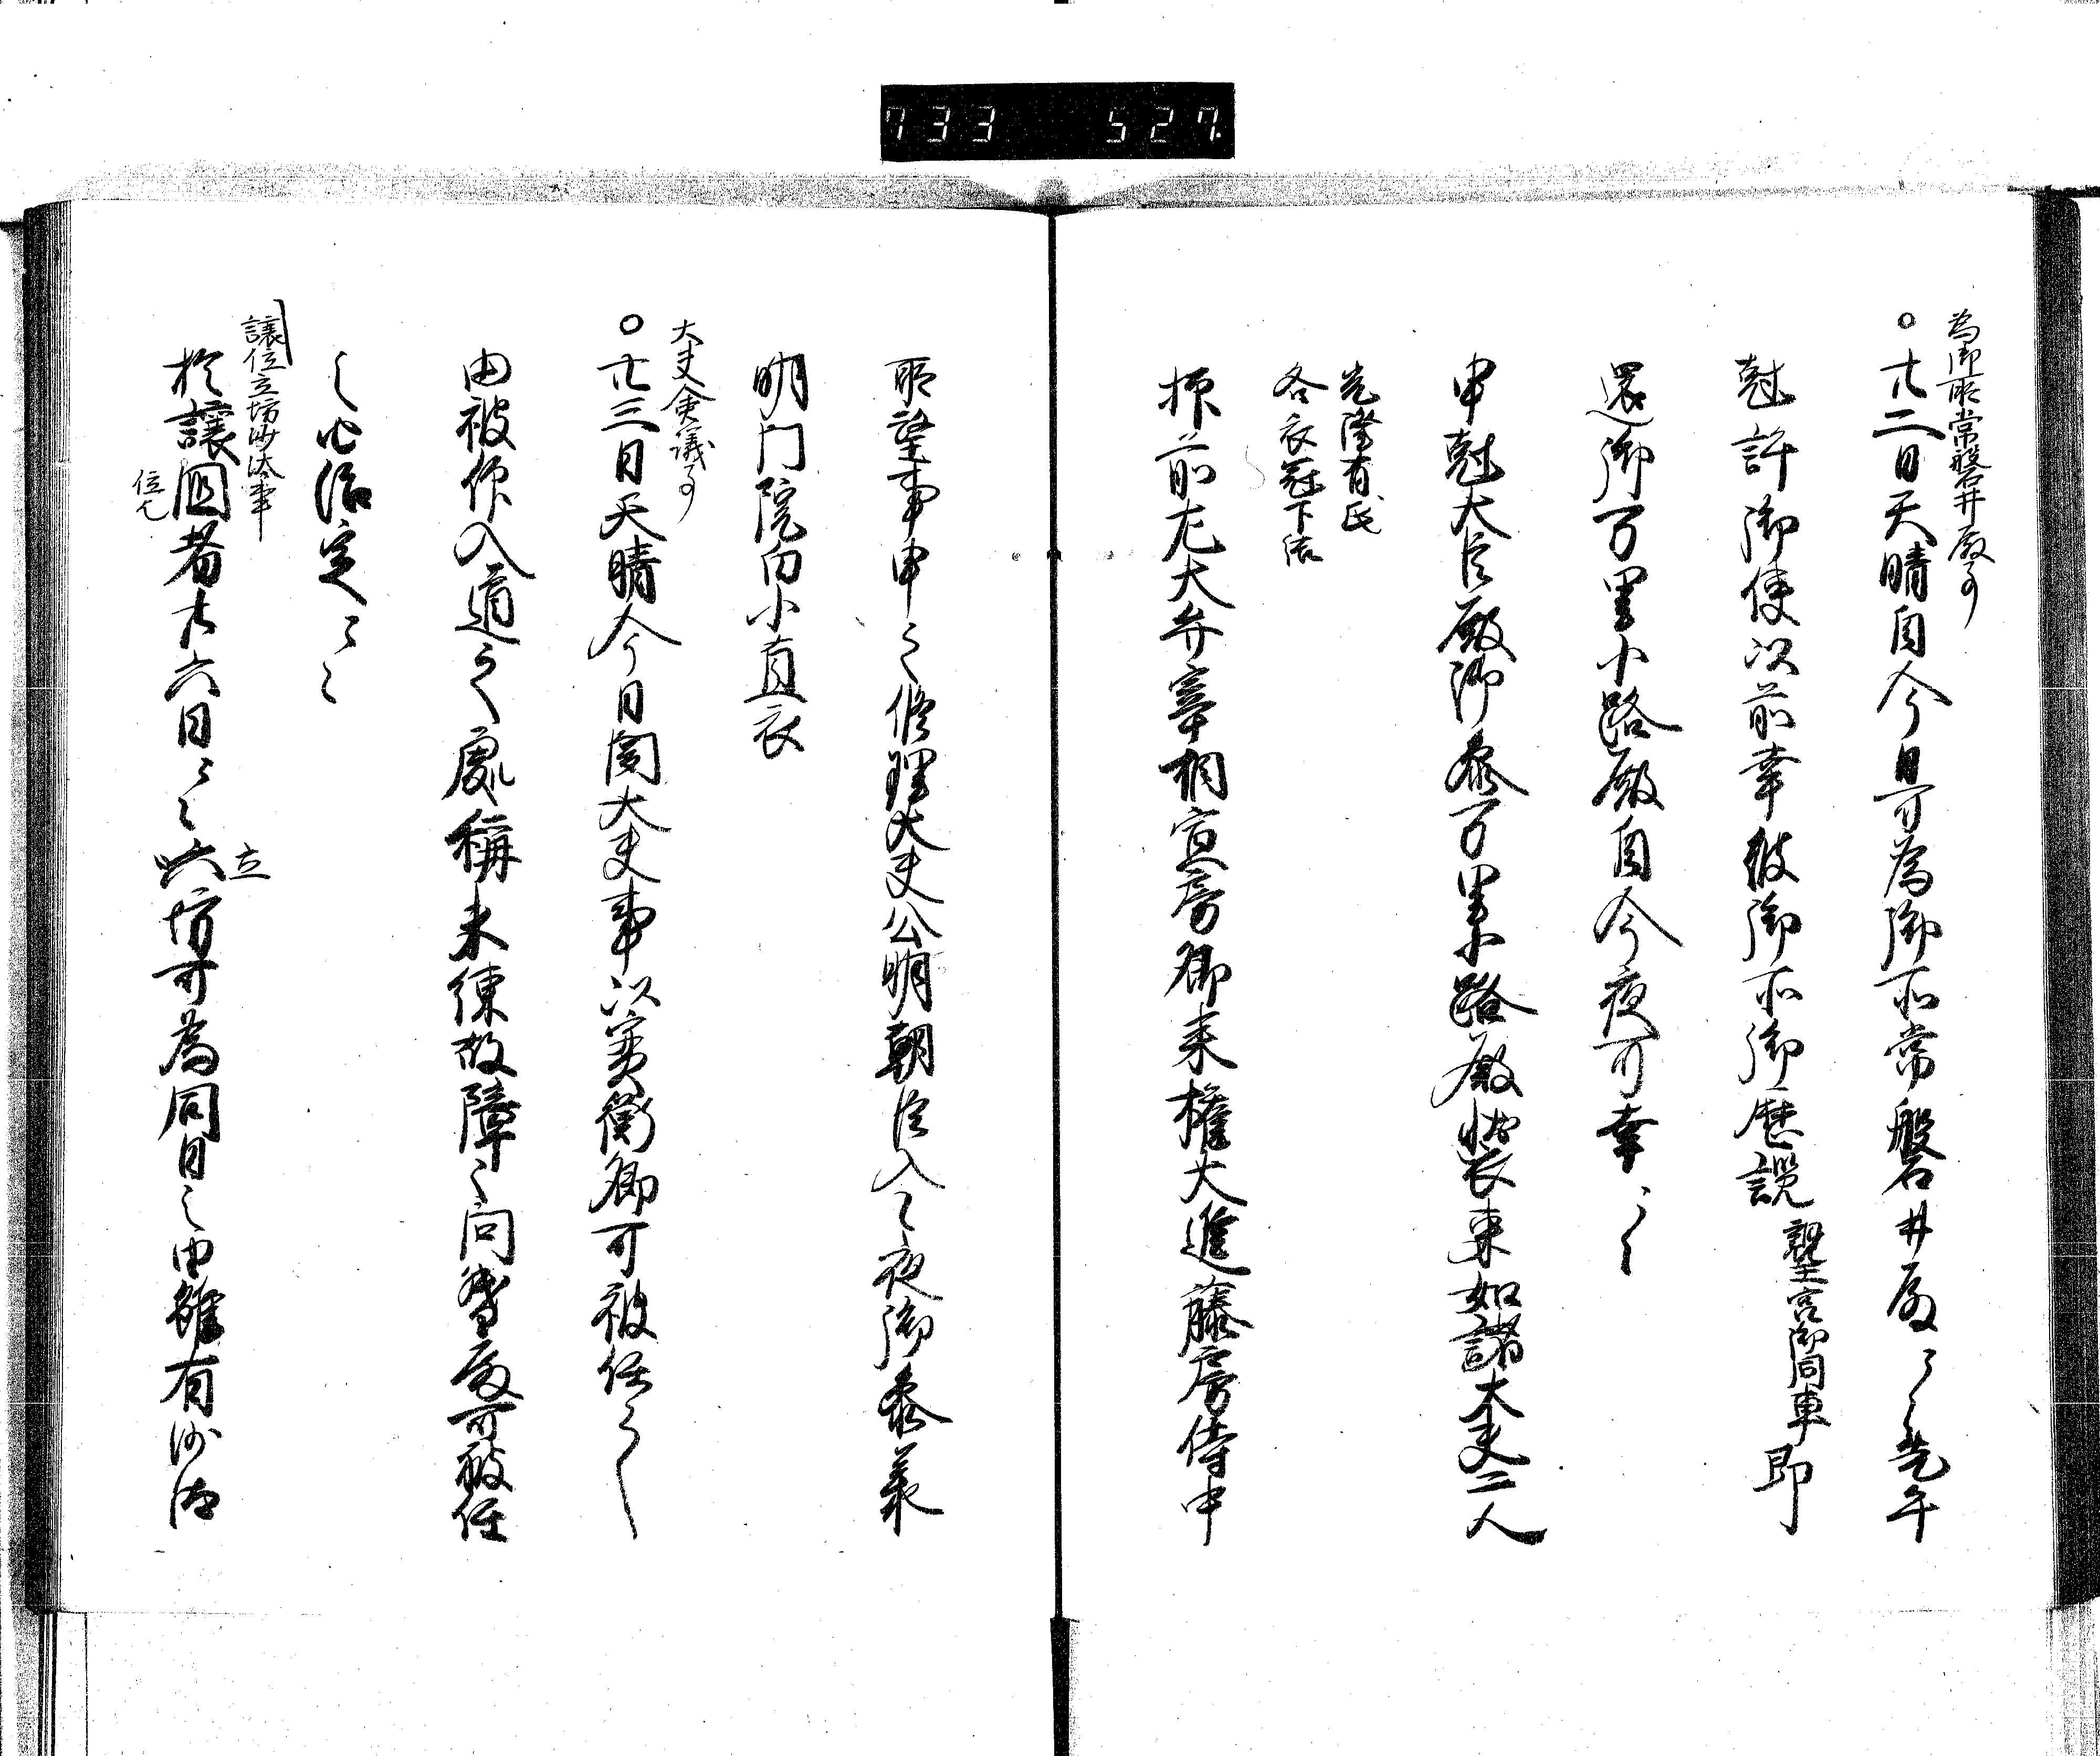 733 527
為御所常盤井殿事
○廿二日天晴自今日可為御所常盤井殿云々先午
剋許御使以前幸彼御所御歴讒親王宮御同車即
還御万里小路殿自今夜可幸云々
申剋大臣殿御参万里小路殿 装束如諸大夫二人
光隆有氏
各衣冠下結
於前左大弁宰相宣房卿来権大進藤房侍中
所望事申之修理大夫公明朝臣入夜御参兼
明門院御小直衣
大夫
○廿三日天晴今日関大夫事以実衡卿可被任云々
由被仰入道之処称未練故障之間 殿可被任
之由治定云々
譲位立坊沙汰事
於譲国者廿六日云々立坊可為同日之由雖有沙汰
位也
立